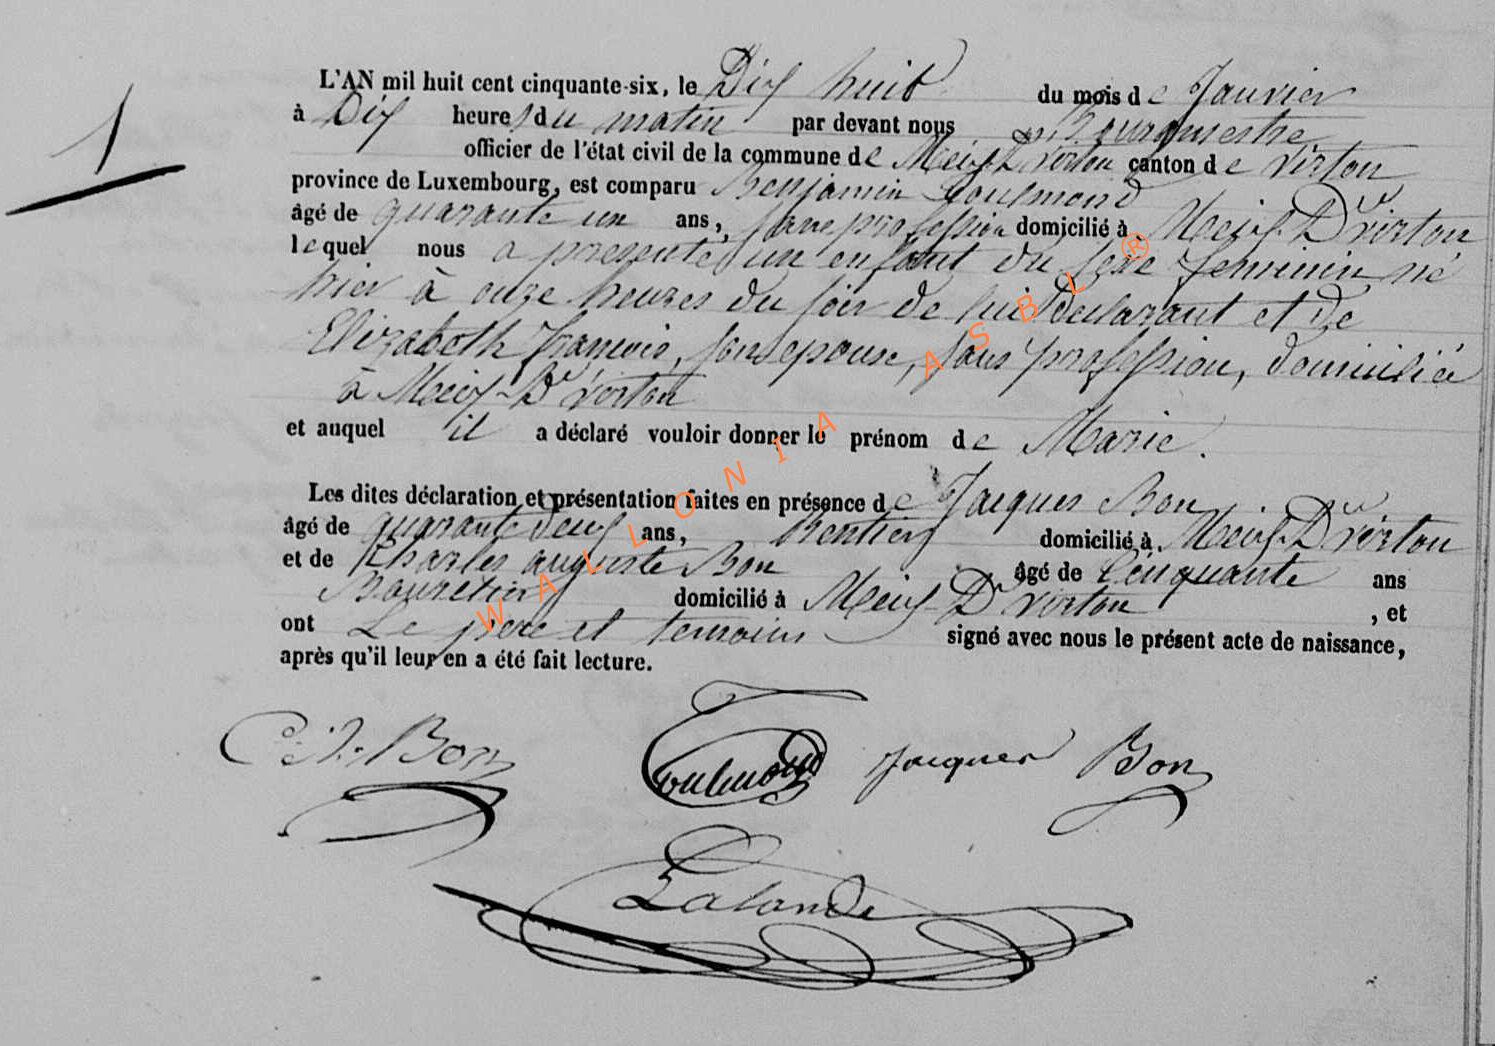 1
L'AN mil huit cent cinquante-six, le Dix huit du mois de Janvier
à Dix heures du matin par devant nous Bourgmestre
officier de l'état civil de la commune de Meix-Dt virton canton de virton
province de Luxembourg, est comparu Benjamin Goulmond
âgé de quarante un ans, sans profession domicilié à Meix-Dt virton
lequel nous a presenté un enfant du sexe feminin né
hier à onze heures du soir de lui déclarant et de
Elizabeth François, son epouse, sans profession, domiciliée
à Meix-Dt virton
et auquel il a déclaré vouloir donner le prénom de Marie.
Les dites déclaration et présentation faites en présence de Jacques Bon
âgé de quarante deux ans, Rentier domicilié à Meix-Dt virton
et de Charles auguste Bon âgé de Cinquante ans
domicilié à Meix-Dt virton , et
ont Le pere et temoins signé avec nous le présent acte de naissance,
après qu'il leur en a été fait lecture.
Bon Goulmond Jacques Bon
Lalande
WALLONIA ASBL ®